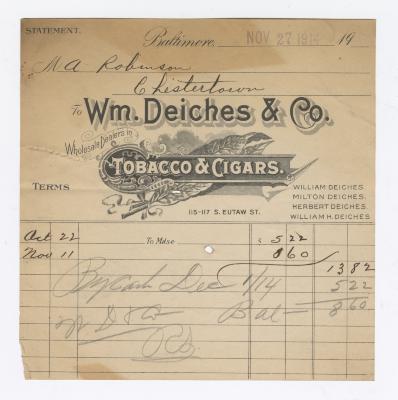 STATEMENT.
Baltimore, NOV 27 1914 19
M A Robinson
Chestertown
To Wm. Deiches & Co.
Wholesale Dealers in
TOBACCO & CIGARS.
TERMS
115-117 S. EUTAW ST.
WILLIAM DEICHES.
MILTON DEICHES.
HERBERT DEICHES.
WILLIAM H. DEICHES
Oct 22 To Mdse 5 22
Nov 11 8 60
13 82
By Cash Dec 1/14 5 22
Bal 8 60